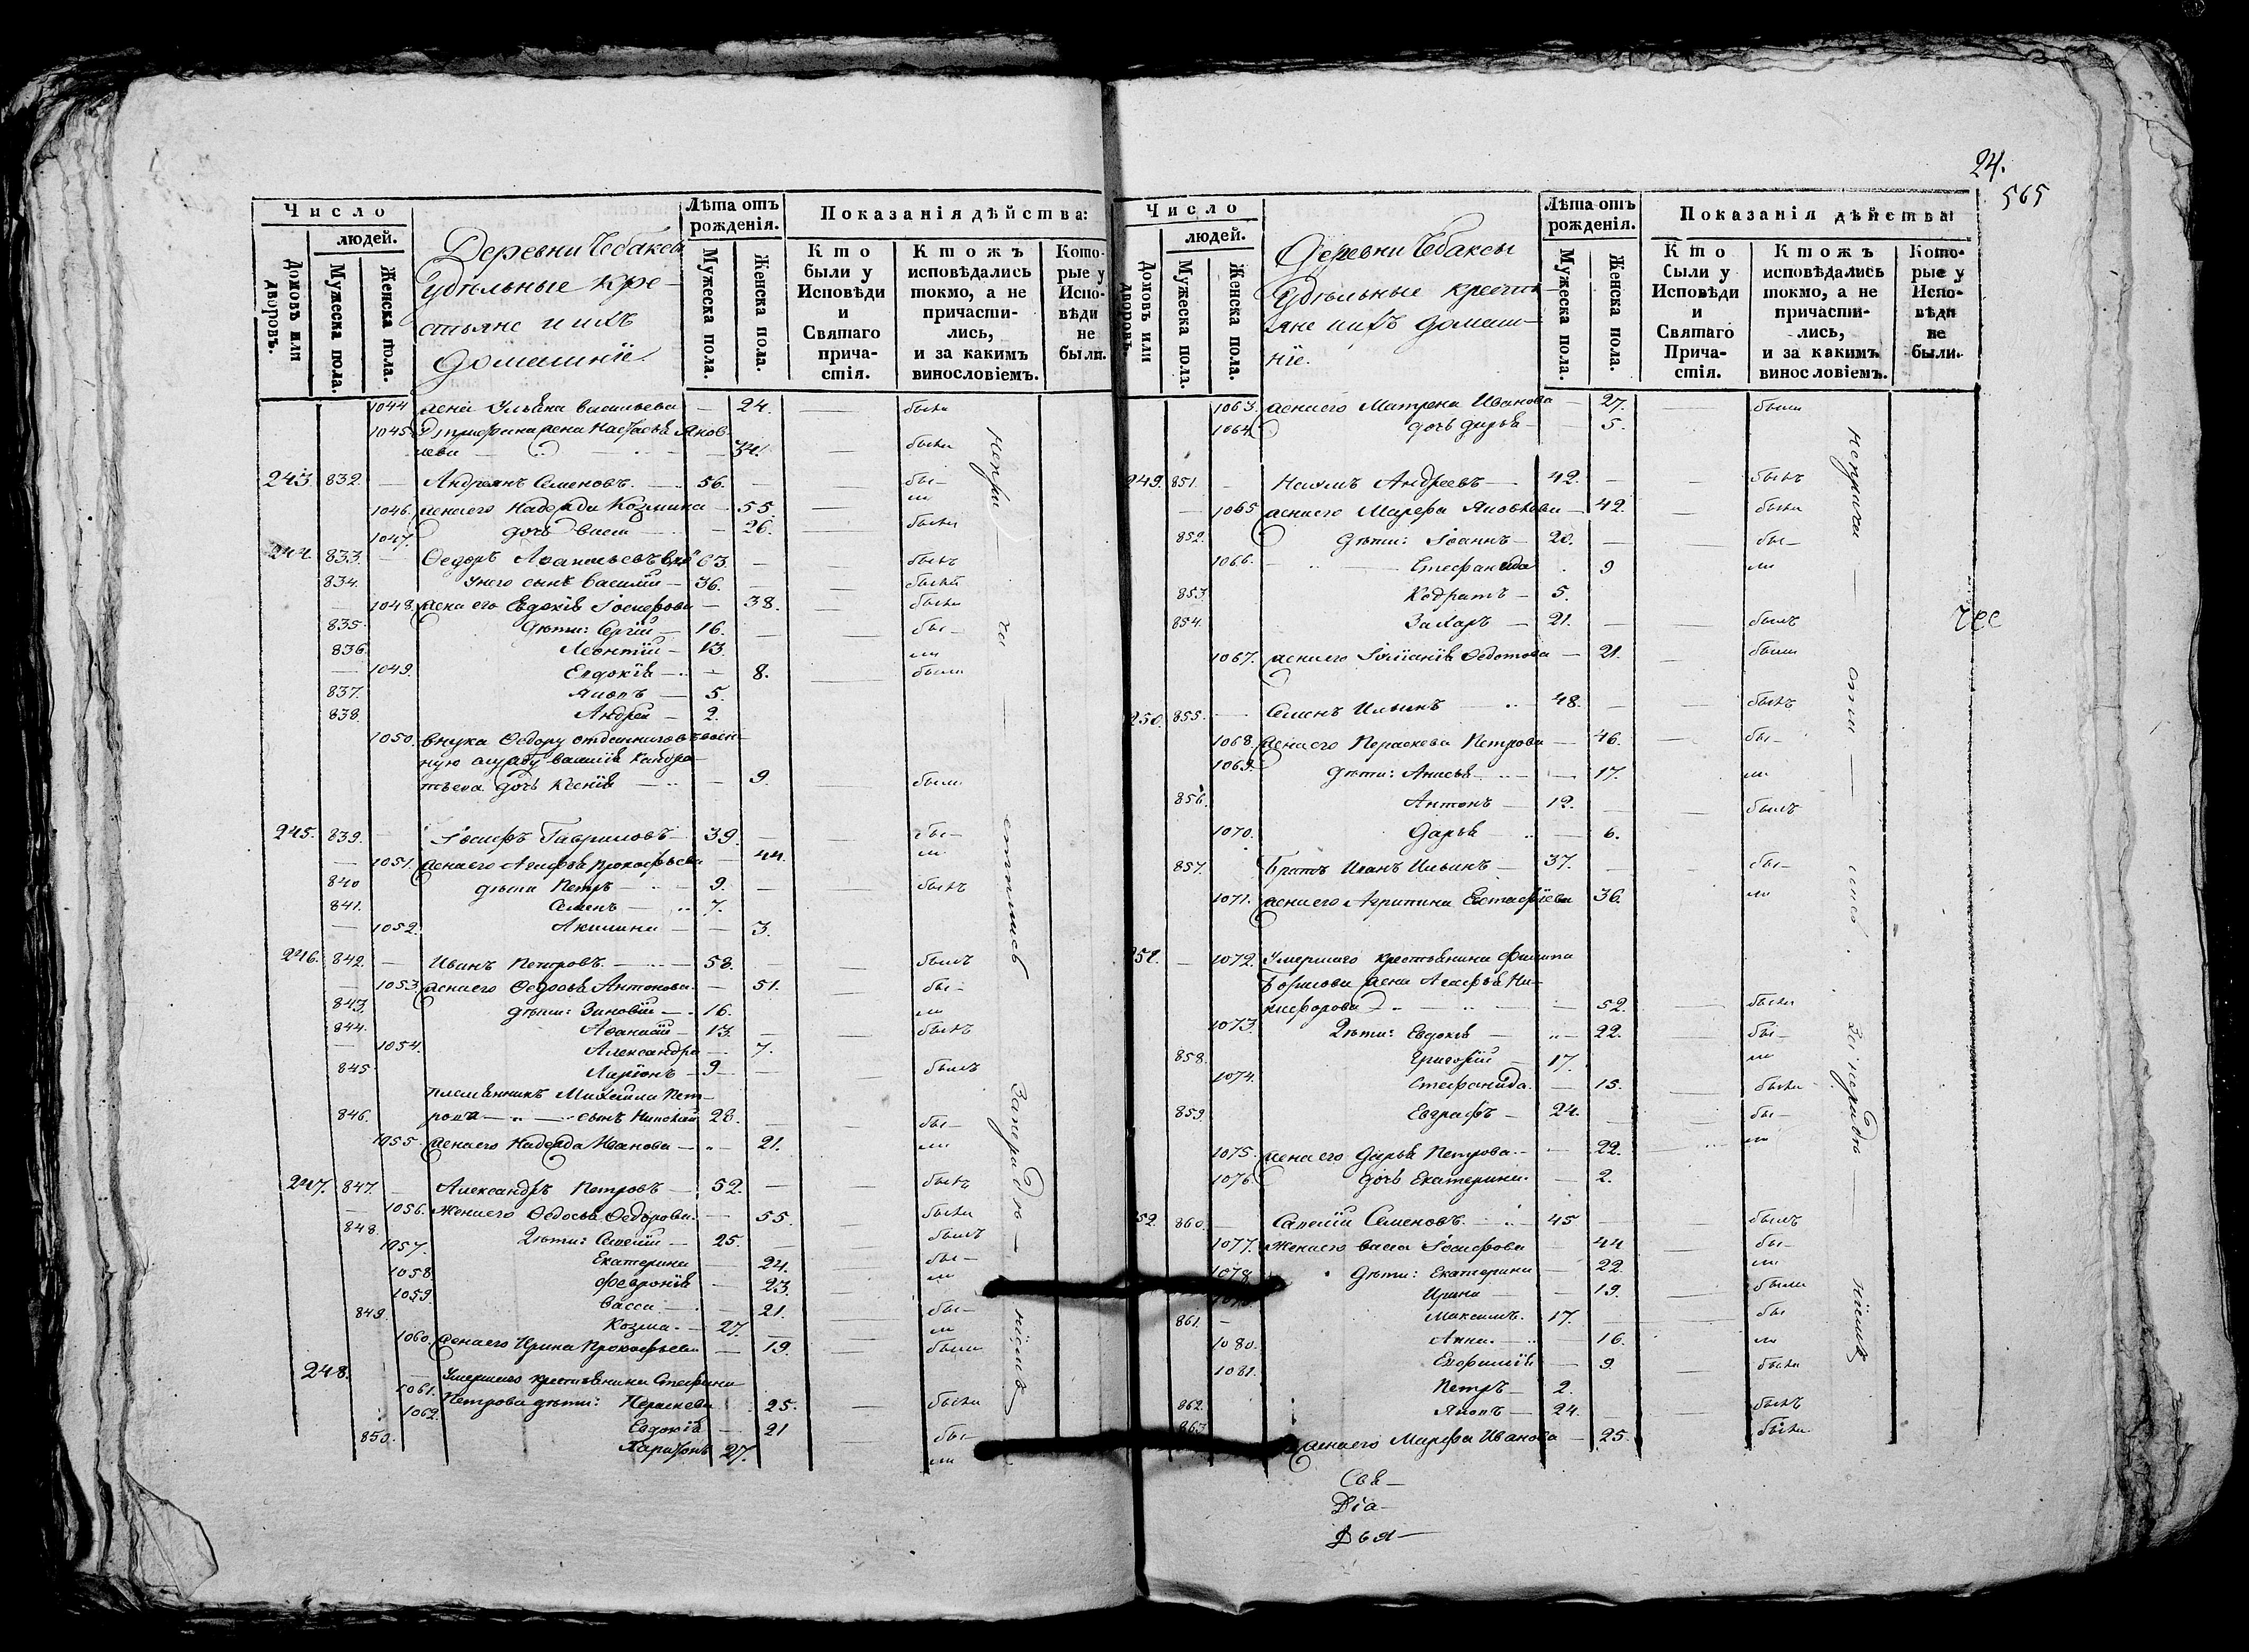 24.
565
Число
людей.
Домовъ или дворовъ.
Мужеска пола.
Женска пола.
Деревни Чебаксы
Удѣльные кре-
стьяне и ихъ
домашніе
Лѣта отъ рожденія.
Мужеска пола.
Женска пола.
Показанія дѣйства:
Кто были у Исповѣди и Святаго причастія.
Ктожъ исповѣдались токмо, а не причастились, и за какимъ винословіемъ.
Которые у Исповѣди не были.
1044 жена Ульяна Васильева — 24. были
1045 жена Настасья Яков-
лева — 34. были
243. 832. Андреянъ Семеновъ. 56. бы-
1046. жена его Надежда Козмина 55. ли
1047. дочь Васса 26. были
244. 833. Ѳедоръ Аѳанасьевъ 63. былъ
834. У него сынъ Василій — 36. былъ
1048. жена его Евдокія Іосифова — 38. была
835. дѣти: Сергій — 16. бы-
836. Леонтій — 13. ли
1049. Евдокія — 8. была
837. Яковъ — 5.
838. Андрей — 2.
1050. внука Ѳедору отданнаго въ воен-
ную службу Василія Кондра-
тьева дочь Ксенія — 9. была
245. 839. Іосифъ Гавриловъ 39. бы-
1051. жена его Агафья Прокофьева 44. ли
840 дѣти Петръ — 9. былъ
841. Семенъ — 7.
1052. Акилина — 3.
246. 842. Иванъ Петровъ. 58. былъ
1053. жена его Ѳедосья Антонова. 51. бы-
843. дѣти: Зиновій — 16. ли
844. Аѳанасій — 13. былъ
1054. Александра — 7.
845 Ларіонъ — 9 былъ
племянникъ Михаила Пет-
846. рова сынъ Николай 23. бы-
1055. жена его Надежда Иванова — 21. ли
247. 847. Александръ Петровъ — 52. былъ
1056. Жена его Ѳедосья Ѳедорова. 55. была
848. Дѣти: Савелій — 25. былъ
1057. Екатерина — 24. бы-
1058. Февронія — 23. ли
1059. Васса — 21. бы-
849. Козма. — 27. ли
1060. жена его Ирина Прокофьева — 19. была
248. Умершаго крестьянина Стефана
1061. Петрова дѣти: Параскева 25. была
1062. Евдокія — 21 бы-
850. Харитонъ 27. ли
Непри — ча — стились За нерадѣ — ніемъ
Число
людей.
Домовъ или дворовъ.
Мужеска пола.
Женска пола.
Деревни Чебаксы
Удѣльные кресть-
яне и ихъ домаш-
ніе.
Лѣта отъ рожденія.
Мужеска пола.
Женска пола.
Показанія дѣйства:
Кто были у Исповѣди и Святаго Причастія.
Ктожъ исповѣдались токмо, а не причастились, и за какимъ винословіемъ.
Которые у Исповѣди не были.
1063. жена его Матрена Иванова — 27. была
1064. дочь Дарья — 5.
249. 851. Наумъ Андреевъ — 42. былъ
1065 жена его Марфа Яковлева — 42. была
852. Дѣти: Іоаннъ — 20. бы-
1066. Стефанида 9 ли
853. Кодратъ — 5.
854. Захаръ — 21. былъ
1067. жена его Іуліанія Ѳедотова — 21. была
250. 855. Семенъ Ильинъ 48. былъ
1068. жена его Параскева Петрова — 46. бы-
1069. дѣти: Анисья — 17. ли
856. Антонъ — 12. былъ
1070. Дарья — 6.
857. Братъ Иванъ Ильинъ — 37. бы-
1071. жена его Агрипина Евстафіева 36. ли
251. 1072. Умершаго крестьянина Филипа
Борисова жена Агафья Ни-
кифорова 52. была
1073. Дѣти: Евдокія — 22. бы-
858. Григорій — 17. ли
1074. Стефанида. — 15. была
859. Евграфъ — 24. бы-
1075. жена его Дарья Петрова. 22. ли
1076. дочь Екатерина. 2.
252. 860. Савелій Семеновъ. 45 былъ
1077. Жена его Васса Іосифова 44 бы-
1078. Дѣти: Екатерина 22 ли
Ирина 19. была
861. Максимъ. 17. бы
1080. Анна. 16. ли
1081. Евфимія 9 была
Петръ 2.
862. Яковъ — 24. былъ
863. жена его Марфа Иванова — 25. была
Неприча — сти — лись. За нерадѣ — ніемъ
Свя-
Діа-
Дья-